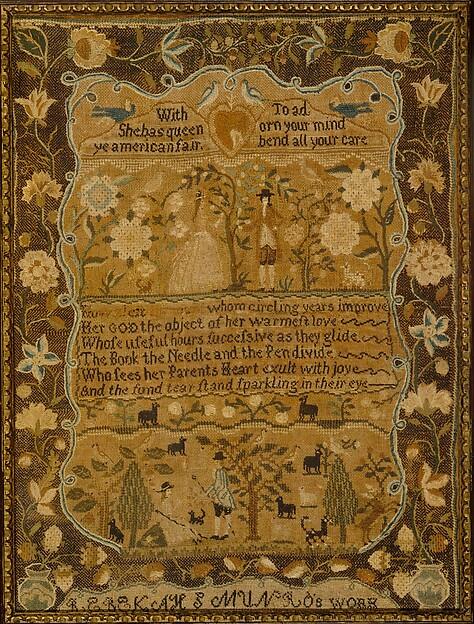 With
Shebas queen
ye american fair.
To ad
orn your mind
bend all your care
whom circling years improve
Her GOD the object of her warmeſt love
Whoſe uſeful hours ſucceſsive as they glide
The Book the Needle and the Pen divide
Who ſees her Parents Heart exult with joye
And the fond tear ſtand ſparkling in their eye
REBEKAH S MUNROs WORK